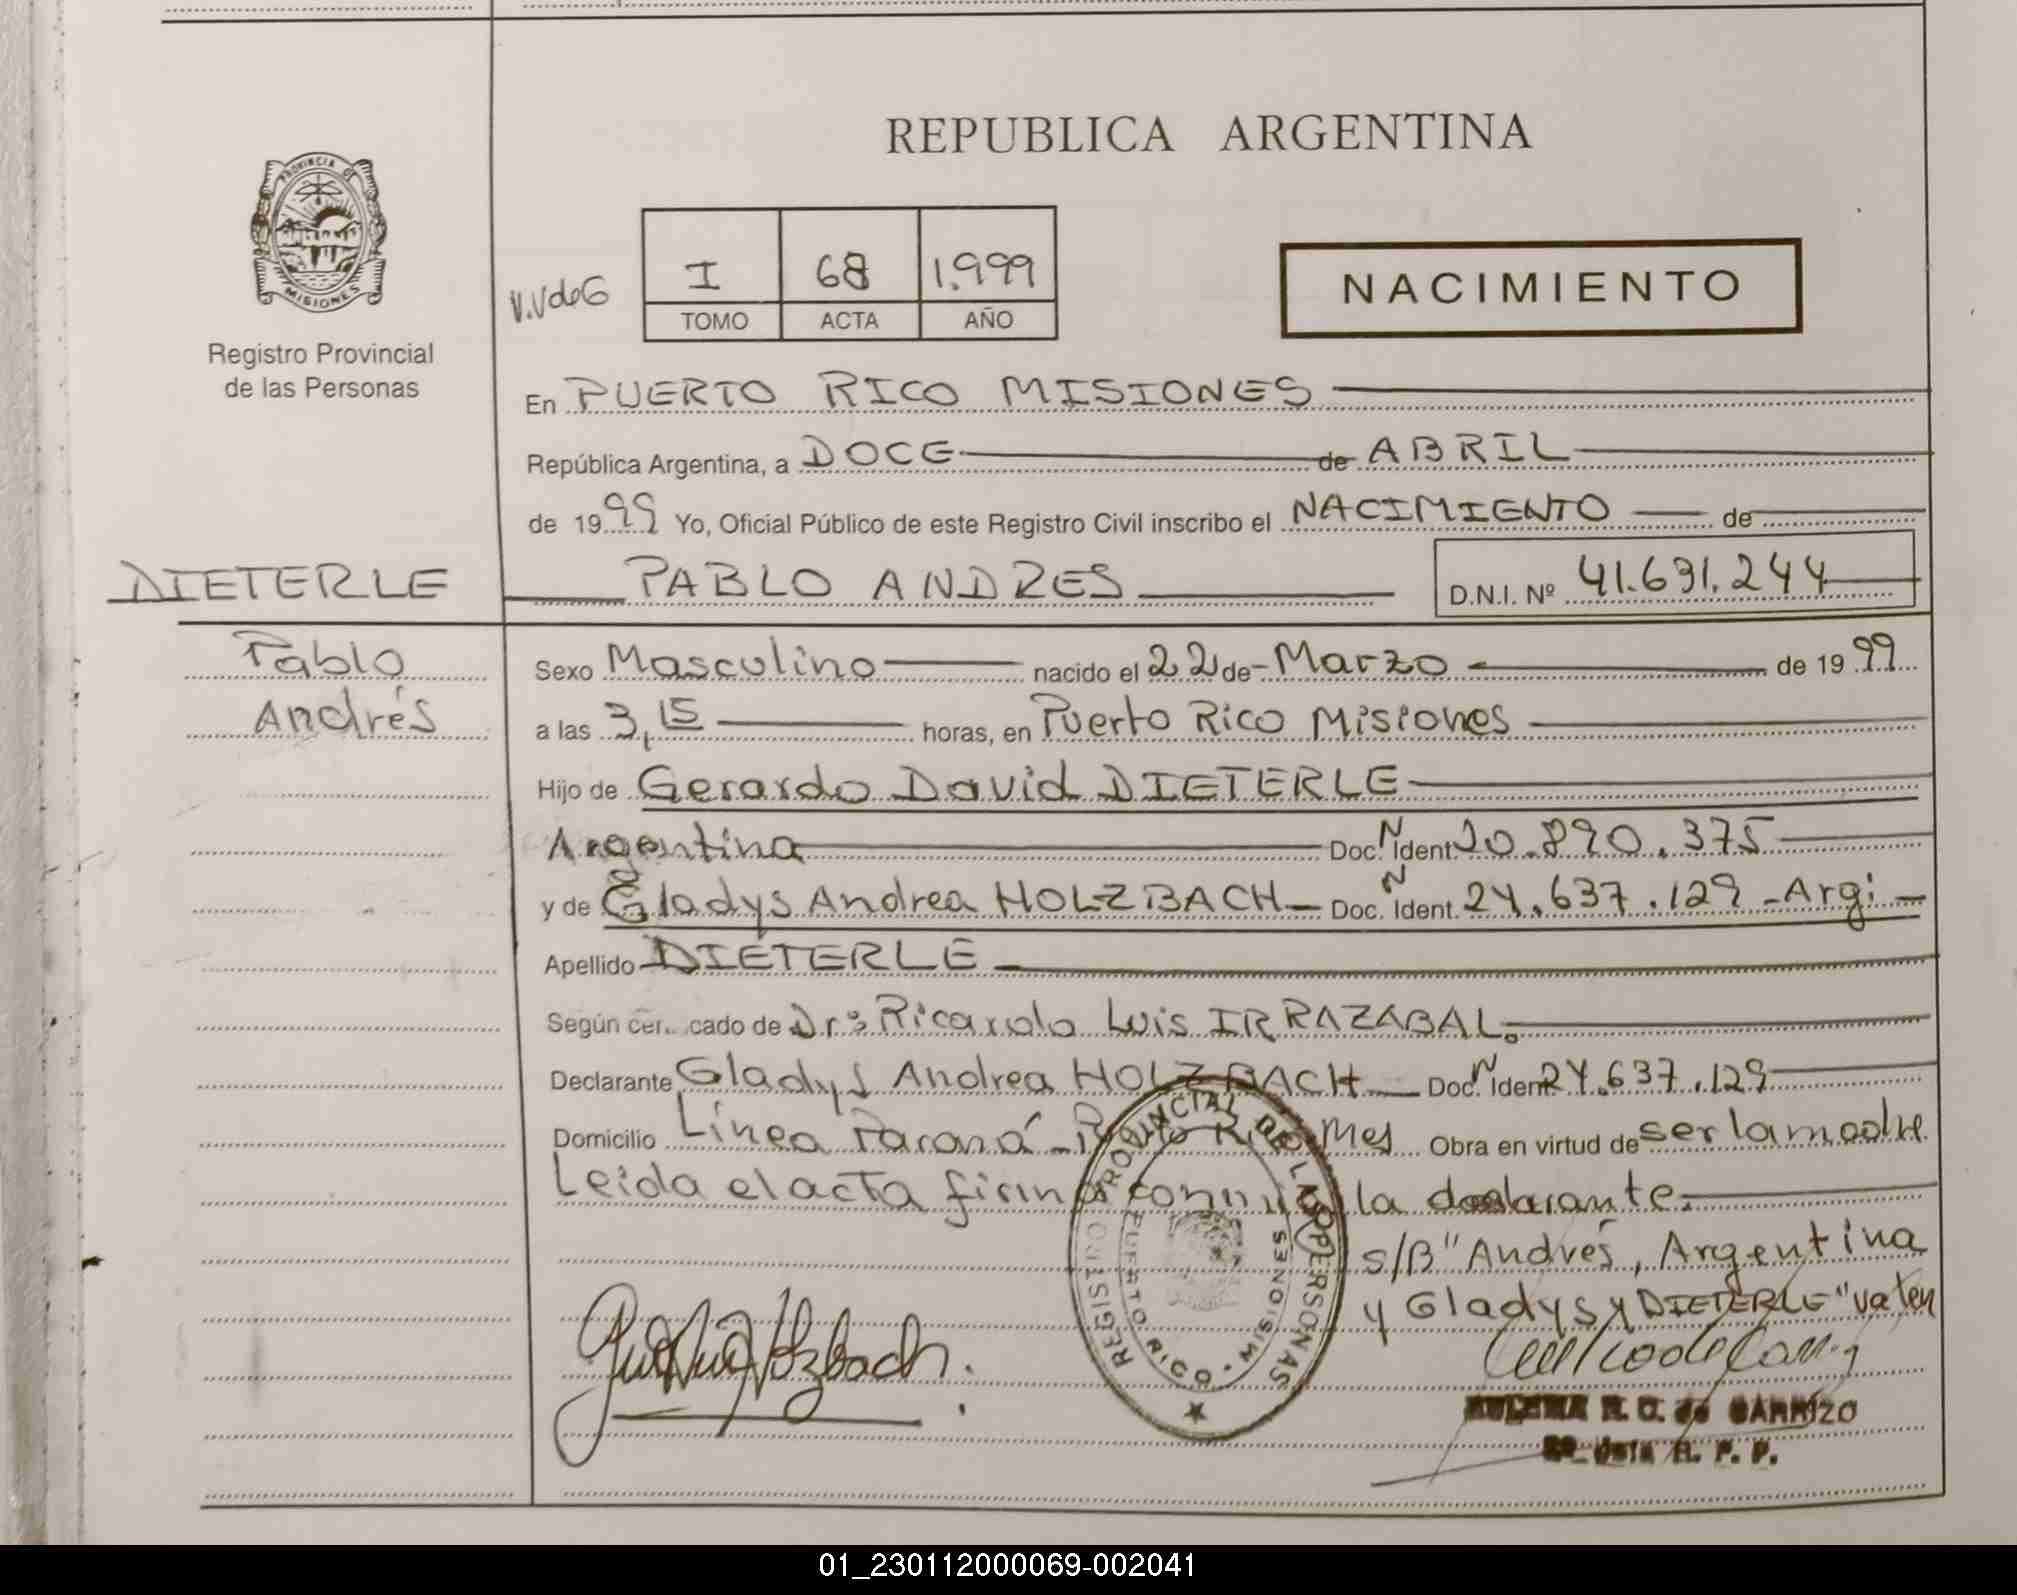 REPUBLICA ARGENTINA
PROVINCIA DE
MISIONES
Registro Provincial
de las Personas
V.VdeG
I 68 1.999
TOMO ACTA AÑO
NACIMIENTO
En PUERTO RICO MISIONES
República Argentina, a DOCE de ABRIL
de 1999 Yo, Oficial Público de este Registro Civil inscribo el NACIMIENTO de
DIETERLE PABLO ANDRES D.N.I. Nº 41.631.244
Pablo Sexo Masculino nacido el 22 de Marzo de 1999
Andrés a las 3,15 horas, en Puerto Rico Misiones
Hijo de Gerardo David DIETERLE
Argentina Doc. N Ident. 20.890.375
y de Gladys Andrea HOLZBACH Doc. N Ident. 24.637.129 - Arg
Apellido DIETERLE
Según cer cado de Dr: Ricardo Luis IRRAZABAL.
Declarante Gladys Andrea HOLZBACH Doc. N Ident. 24.637.129
Domicilio Línea Paraná - Puerto Rico Mes Obra en virtud de ser la madre
Leída el acta firma conmigo la declarante.
s/B "Andrés, Argentina
y Gladys y DIETERLE" valen
REGISTRO PROVINCIAL DE LAS PERSONAS
PUERTO RICO - MISIONES
Holzbach.
R. C. de CARRIZO
R. P. P.
01_230112000069-002041